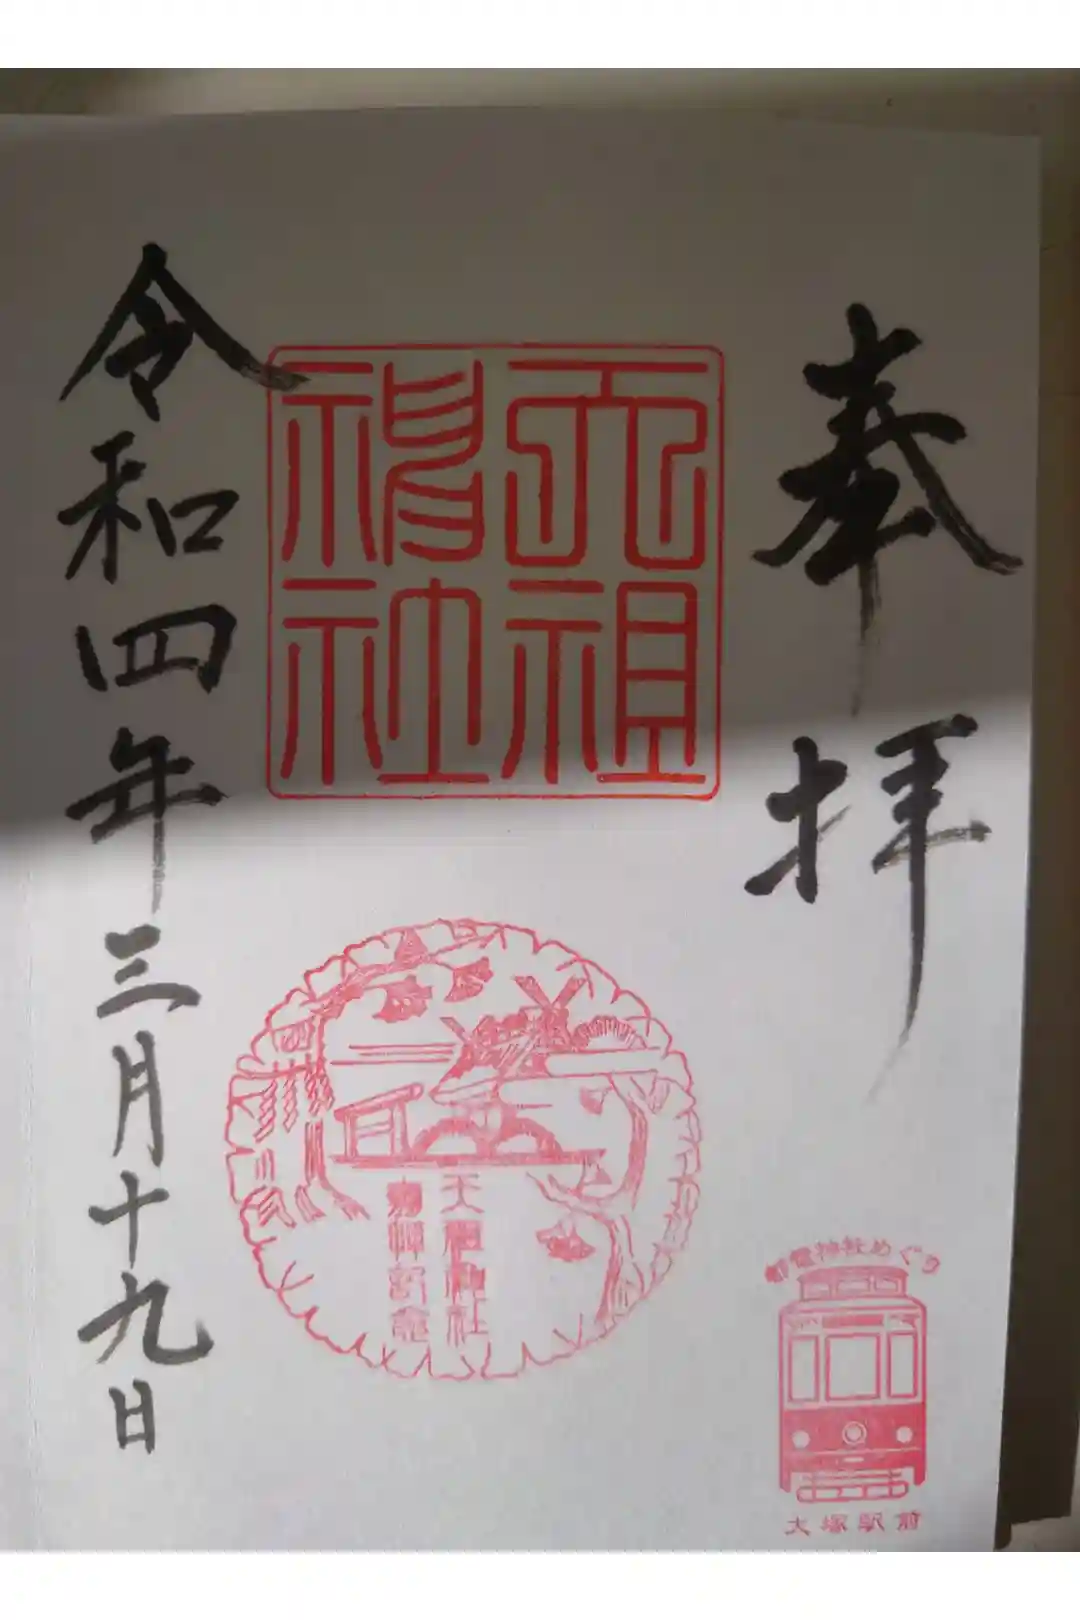 奉拝
天祖
神社
天祖神社
参拝記念
令和四年三月十九日
都電神社めぐり
大塚駅前